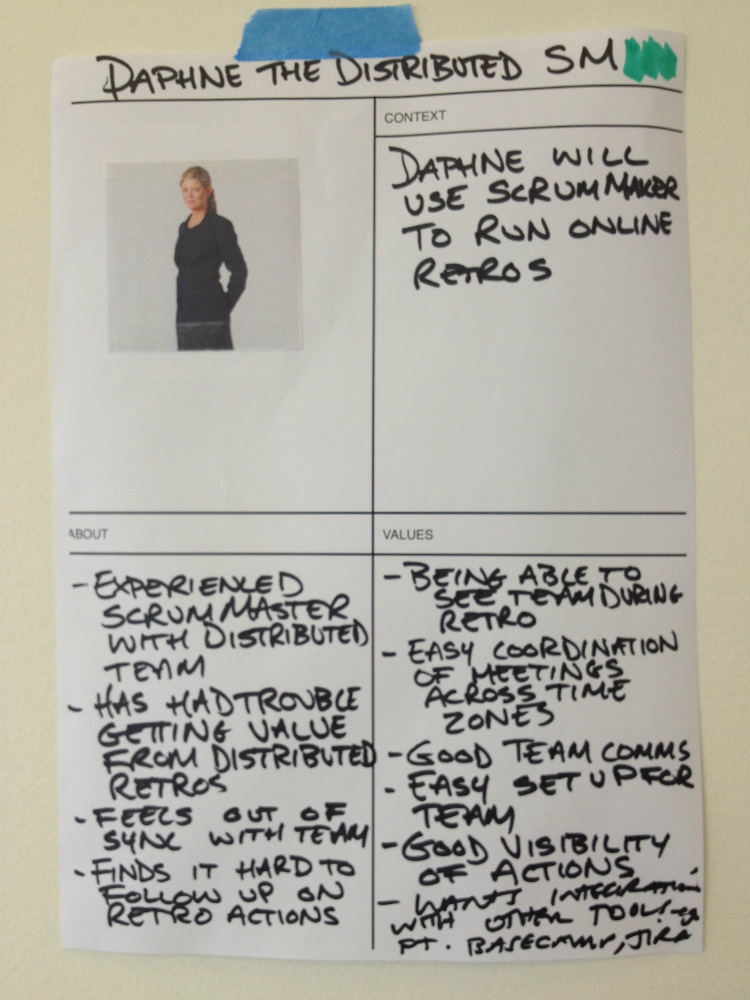 DAPHNE THE DISTRIBUTED SM
CONTEXT
DAPHNE WILL
USE SCRUMMAKER
TO RUN ONLINE
RETROS
ABOUT
- EXPERIENCED
SCRUMMASTER
WITH DISTRIBUTED
TEAM
- HAS HAD TROUBLE
GETTING VALUE
FROM DISTRIBUTED
RETROS
- FEELS OUT OF
SYNC WITH TEAM
- FINDS IT HARD TO
FOLLOW UP ON
RETRO ACTIONS
VALUES
- BEING ABLE TO
SEE TEAM DURING
RETRO
- EASY COORDINATION
OF MEETINGS
ACROSS TIME
ZONES
- GOOD TEAM COMMS
- EASY SET UP FOR
TEAM
- GOOD VISIBILITY
OF ACTIONS
- WANTS INTEGRATION
WITH OTHER TOOLS eg
PT. BASECAMP, JIRA